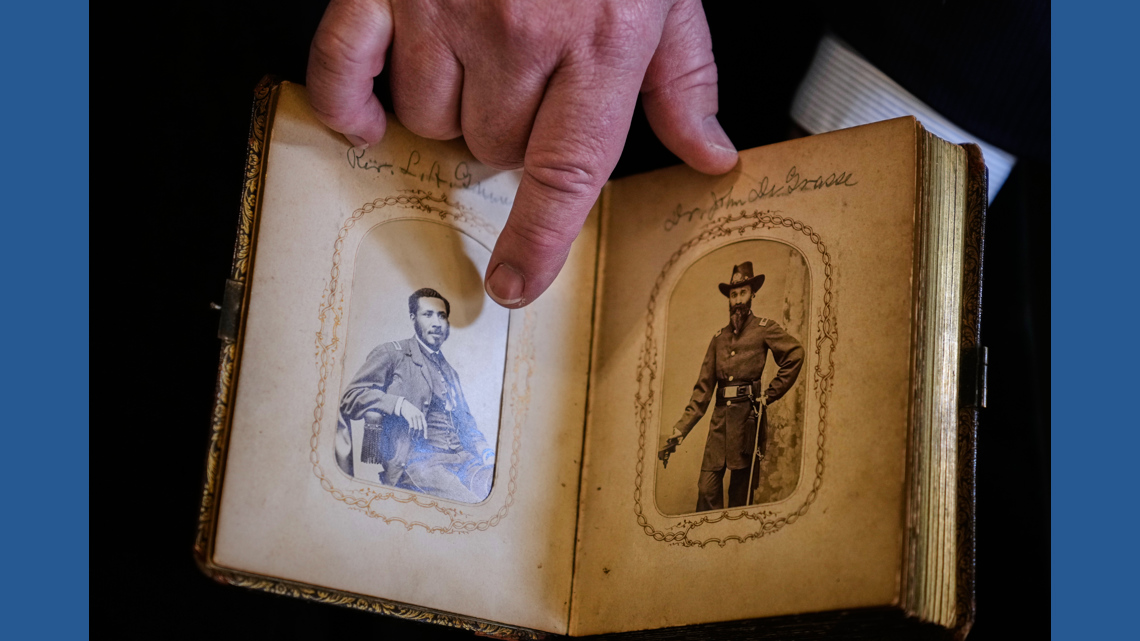 Rev. L. A. Grimes
Dr. John De Grasse